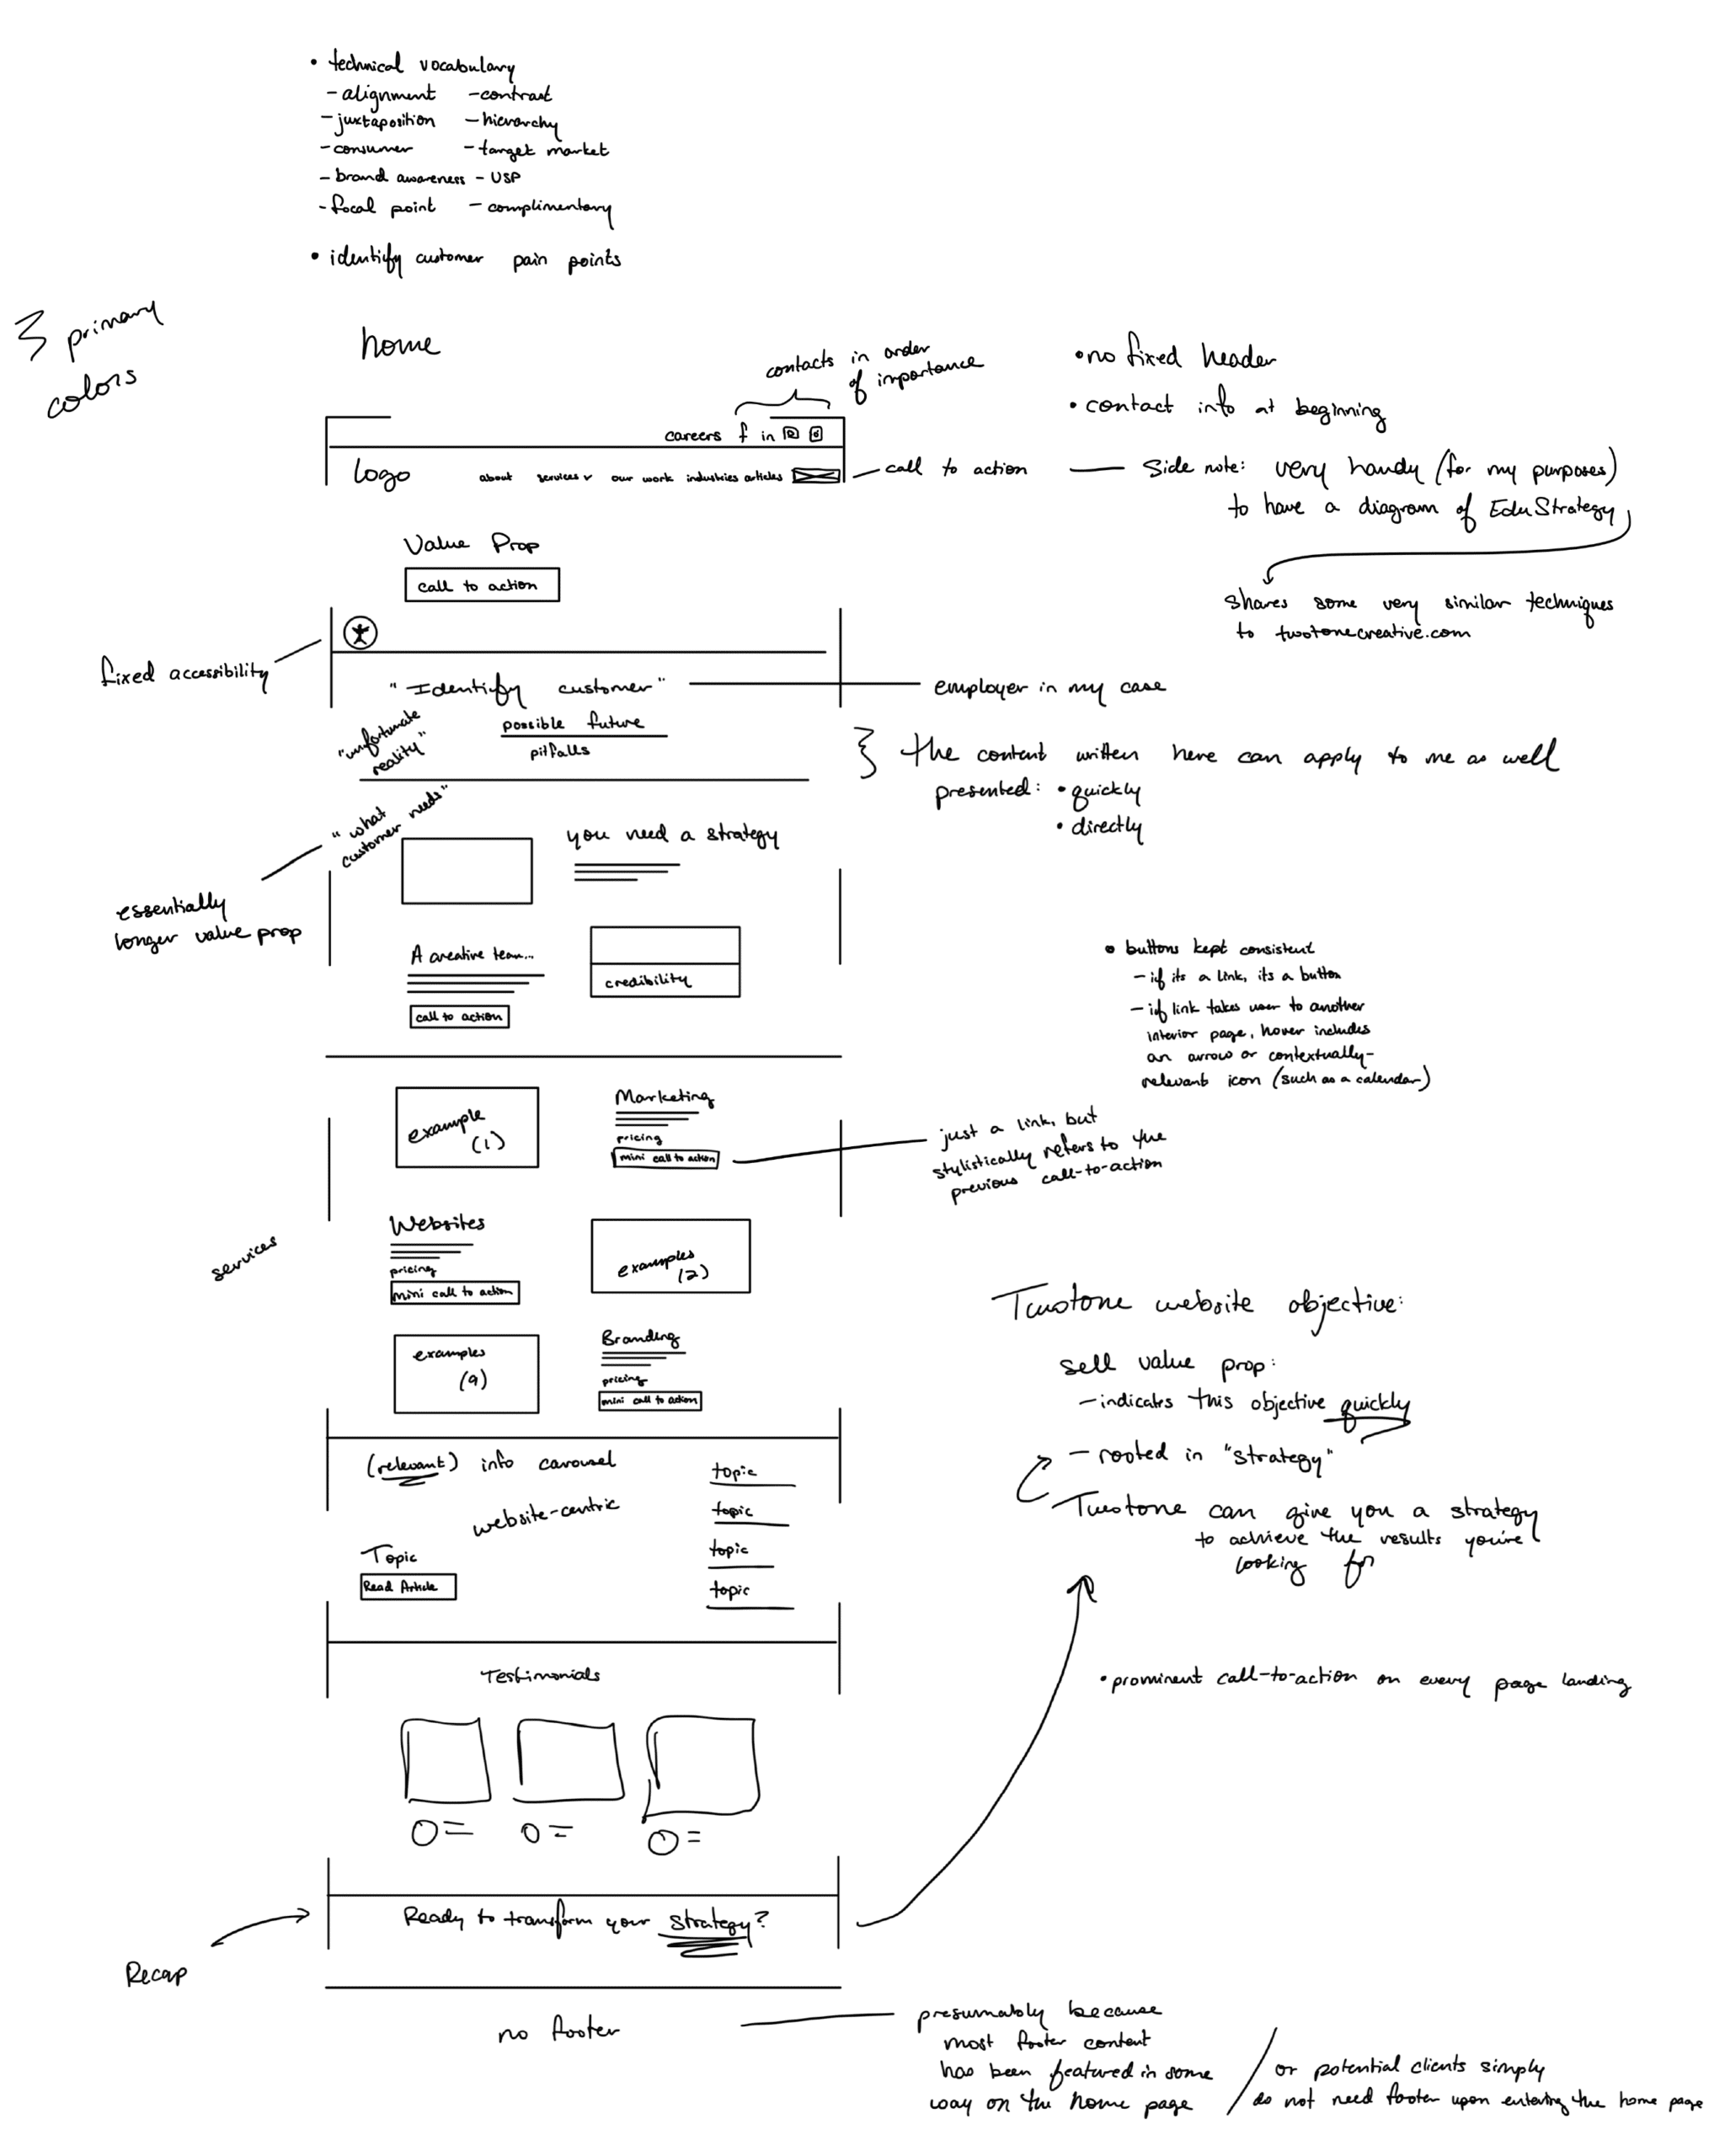 • technical vocabulary
- alignment - contrast
- juxtaposition - hierarchy
- consumer - target market
- brand awareness - USP
- focal point - complimentary
• identify customer pain points
3 primary
colors
home
contacts in order
of importance
• no fixed header
• contact info at beginning
careers f in
Logo about services v our work industries articles
call to action
Side note: very handy (for my purposes)
to have a diagram of EduStrategy
shares some very similar techniques
to twotonecreative.com
Value Prop
call to action
fixed accessibility
"Identify customer"
employer in my case
"unfortunate
reality"
possible future
pitfalls
the content written here can apply to me as well
presented: • quickly
• directly
"what
customer needs"
essentially
longer value prop
you need a strategy
A creative team...
call to action
credibility
• buttons kept consistent
- if its a link, its a button
- if link takes user to another
interior page, hover includes
an arrow or contextually-
relevant icon (such as a calendar)
services
example
(1)
Marketing
pricing
mini call to action
just a link, but
stylistically refers to the
previous call-to-action
Websites
pricing
mini call to action
examples
(2)
examples
(9)
Branding
pricing
mini call to action
Twotone website objective:
sell value prop:
- indicates this objective quickly
- rooted in "strategy"
Twotone can give you a strategy
to achieve the results you're
looking for
(relevant) info carousel
website-centric
Topic
Read Article
topic
topic
topic
topic
• prominent call-to-action on every page landing
Testimonials
Recap
Ready to transform your strategy?
no footer
presumably because
most footer content
has been featured in some
way on the home page
/ or potential clients simply
do not need footer upon entering the home page